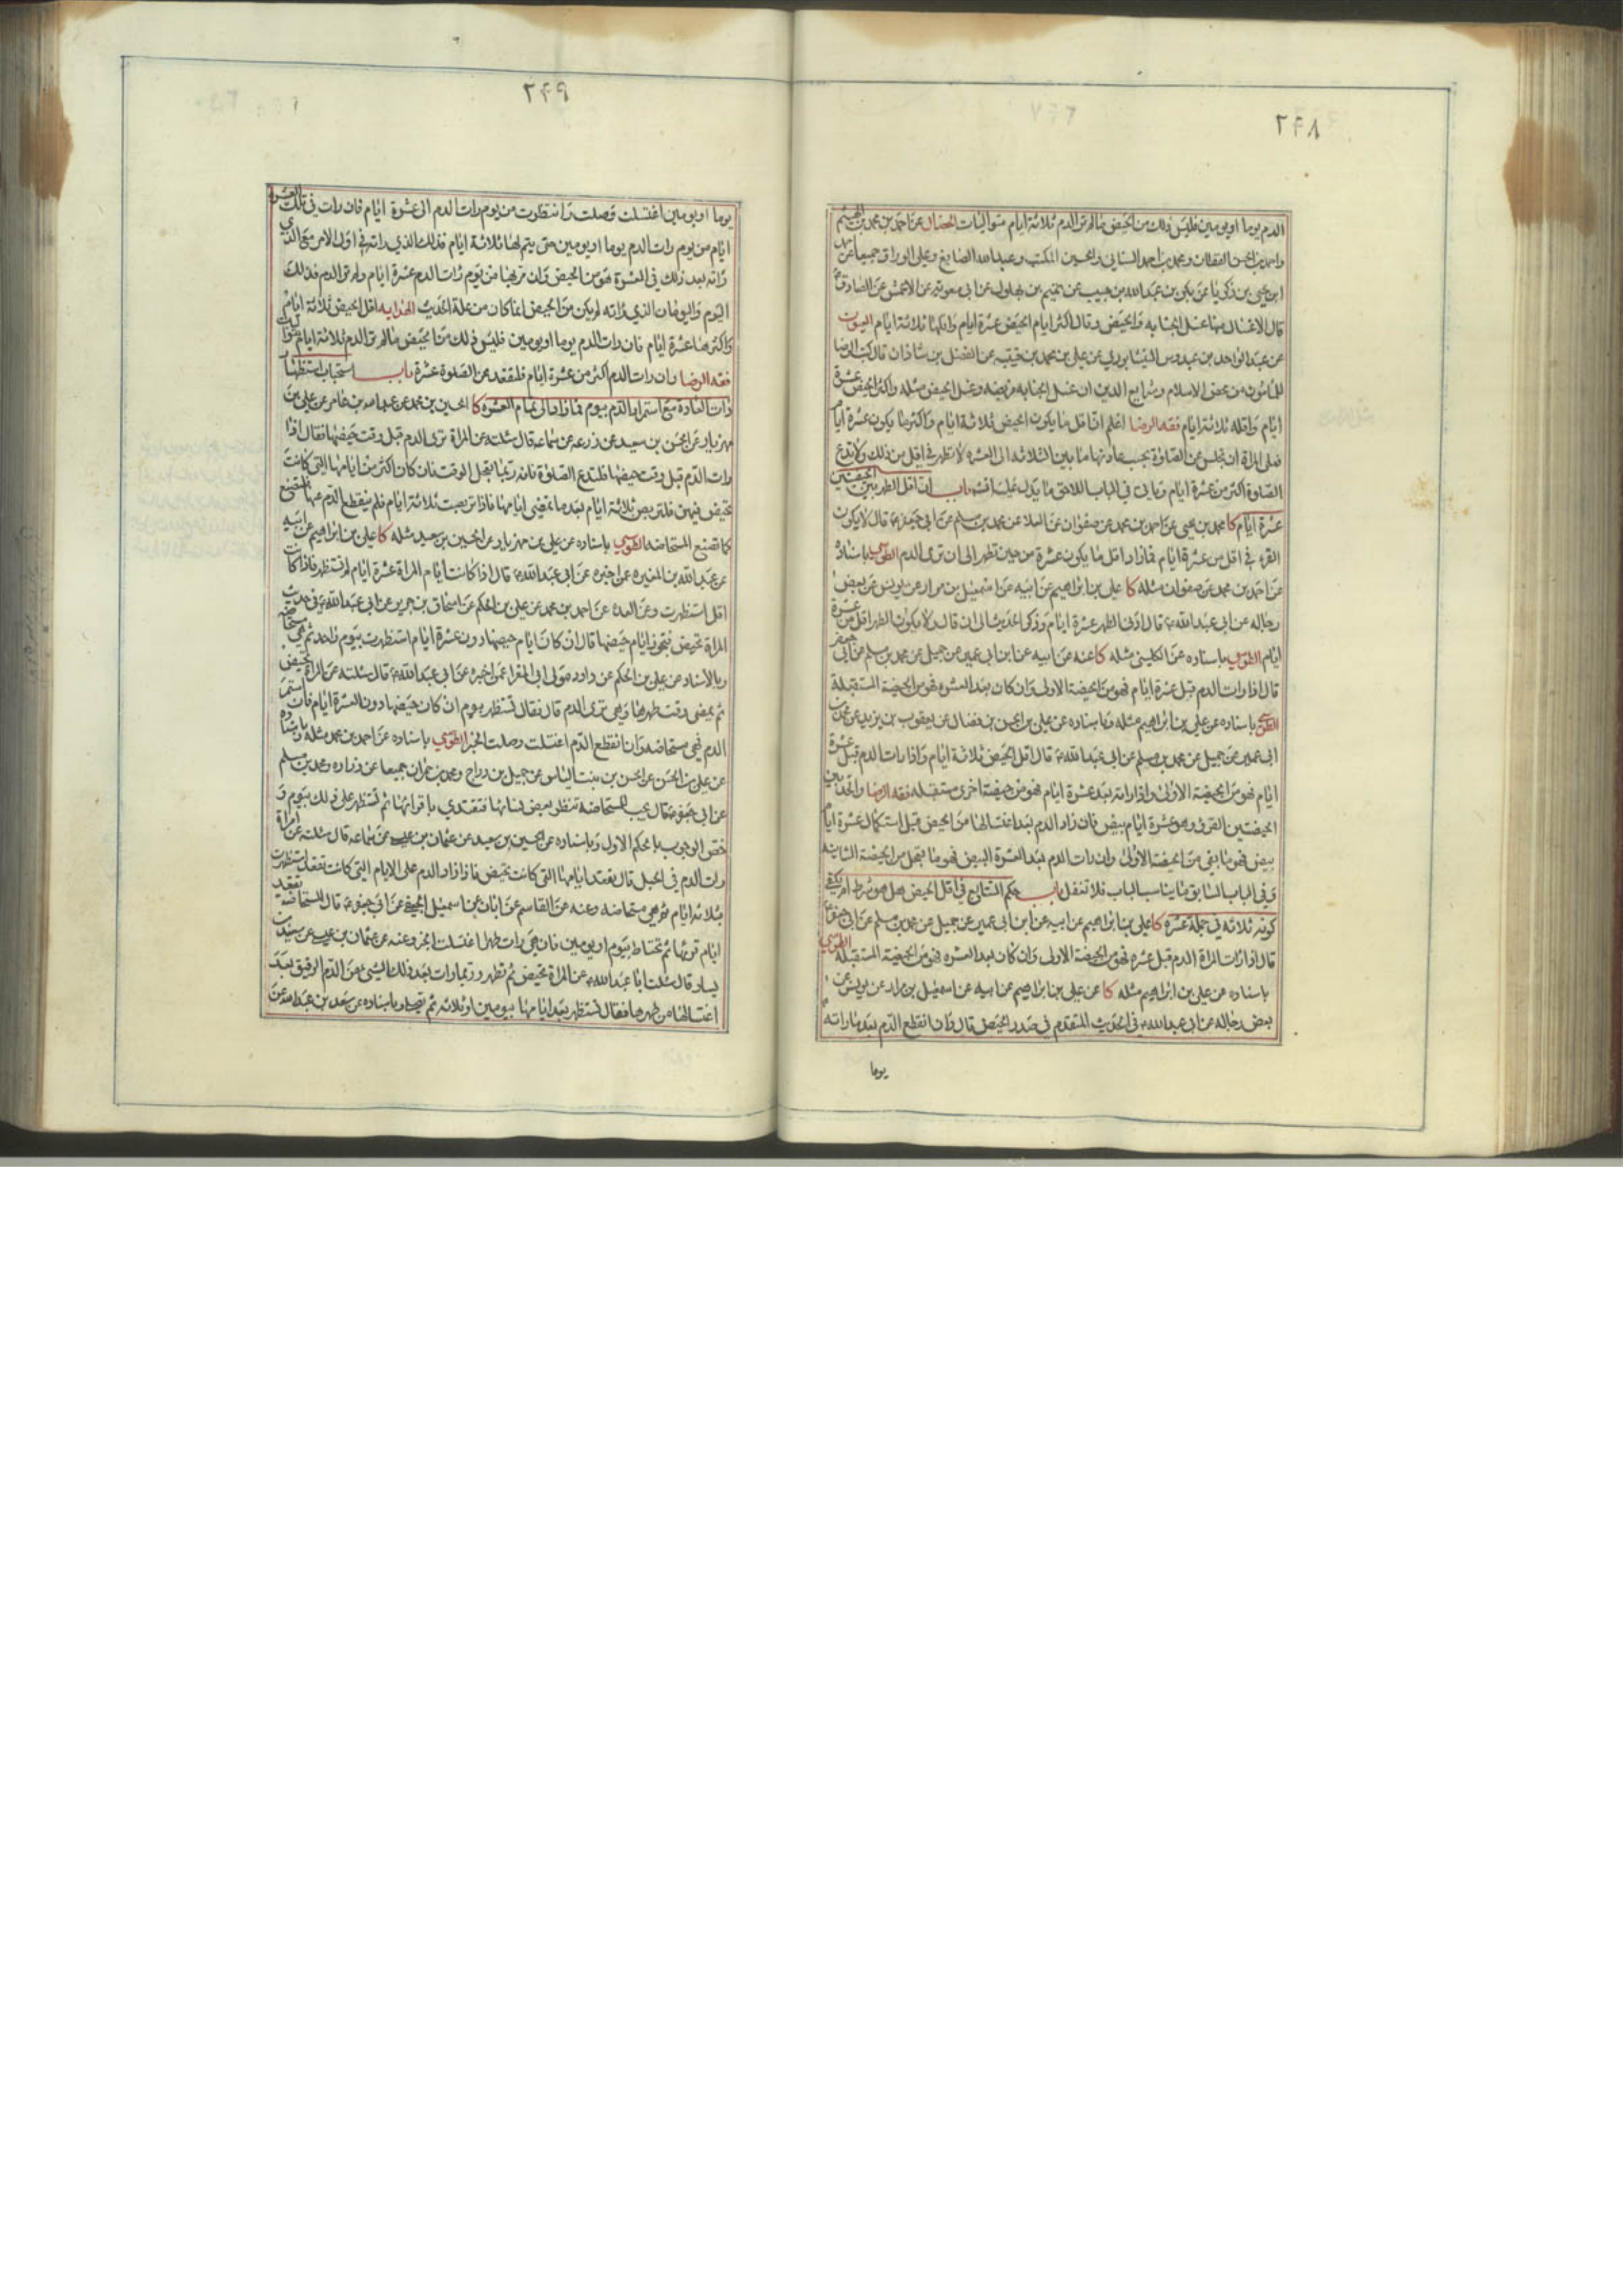 ٢٤٨
الدم يوما او يومين فليس ذلك من الحيض ما لم تر الدم ثلاثة ايام متواليات الخصال عن احمد بن محمد بن الهيثم
واحمد بن الحسن القطان ومحمد بن احمد السناني والحسين المكتب وعبد الله الصايغ وعلي الوراق جميعا عن احمد
ابن يحيى بن زكريا عن بكر بن عبد الله بن حبيب عن تميم بن بهلول عن ابي معوية عن الاعمش عن الصادق ع
قال الاغسال منها غسل الجنابه والحيض وقال اكثر ايام الحيض عشرة ايام واقلها ثلاثة ايام العيون
عن عبد الواحد بن عبدوس النيشابوري عن علي بن محمد بن قتيبه عن الفضل بن شاذان قال كتب الرضا
للمامون من محض الاسلام وشرايع الدين ان غسل الجنابه فريضه وغسل الحيض مثله واكثر الحيض عشرة
ايام واقله ثلاثة ايام فقه الرضا اعلم ان اقل ما يكون الحيض ثلاثة ايام واكثر ما يكون عشرة ايام
فعلى المراة ان تجلس عن الصلوة بحسب عادتها ما بين الثلاثه الى العشره لا تطهر في اقل من ذلك ولا تدع
الصلوة اكثر من عشرة ايام وياتي في الباب اللاحق ما يدل عليه انش باب ان اقل الطهر بين الحيضتين
عشرة ايام كا محمد بن يحيى عن احمد بن محمد عن صفوان عن العلا عن محمد بن مسلم عن ابي جعفر ع قال لا يكون
القرء في اقل من عشرة ايام فمازاد اقل ما يكون عشرة من حين تطهر الى ان ترى الدم الطوسي باسناده
عن احمد بن محمد عن صفوان مثله كا علي بن ابراهيم عن ابيه عن اسمعيل بن مرار عن يونس عن بعض
رجاله عن ابي عبد الله ع قال ادنى الطهر عشرة ايام وذكر الحديث الى ان قال ولا يكون الطهر اقل من عشرة
ايام الطوسي باسناده عن الكليني مثله كا عنه عن ابيه عن ابن ابي عمير عن جميل عن محمد بن مسلم عن ابي جعفر
قال اذا رات الدم قبل عشرة ايام فهو من الحيضة الاولى وان كان بعد العشره فهو من الحيضة المستقبلة
الطوسي باسناده عن علي بن ابراهيم مثله وباسناده عن علي بن الحسن بن فضال عن يعقوب بن يزيد عن محمد بن
ابي عمير عن جميل عن محمد بن مسلم عن ابي عبد الله ع قال اقل الحيض ثلاثة ايام واذا رات الدم قبل عشرة
ايام فهو من الحيضة الاولى واذا راته بعد عشرة ايام فهو من حيضة اخرى مستقبله فقه الرضا والحد بين
الحيضتين القرء وهو عشرة ايام بيض فان زاد الدم بعد اغتسالها من الحيض قبل استكمال عشرة ايام
بيض فهو ما بقي من الحيضة الاولى وان رات الدم بعد العشرة البيض فهو ما تعجل من الحيضة الثانيه
وفي الباب السابق ما يناسب الباب فلا تغفل باب حكم التتابع في اقل الحيض هل هو شرط ام يكفي
كونه ثلاثه في جملة عشره كا علي بن ابراهيم عن ابيه عن ابن ابي عمير عن جميل عن محمد بن مسلم عن ابي جعفر ع
قال اذا رات المراة الدم قبل عشره فهو من الحيضة الاولى وان كان بعد العشره فهو من الحيضة المستقبله الطوسي
باسناده عن علي بن ابراهيم مثله كا عن علي بن ابراهيم عن ابيه عن اسمعيل بن مرار عن يونس عن
بعض رجاله عن ابي عبد الله ع في الحديث المتقدم في صدر الحيض قال وان انقطع الدم بعد ما راته
يوما
٢٤٩
يوما او يومين اغتسلت وصلت وانتظرت من يوم رات الدم الى عشرة ايام فان رات في تلك العشرة
ايام من يوم رات الدم يوما او يومين حتى يتم لها ثلاثة ايام فذلك الذي راته في اول الامر مع الذي
راته بعد ذلك في العشرة هو من الحيض وان مر بها من يوم رات الدم عشرة ايام ولم تر الدم فذلك
اليوم واليومان الذي راته لم يكن من الحيض انما كان من علة الحديث الهدايه اقل الحيض ثلاثة ايام
واكثرها عشرة ايام فان رات الدم يوما او يومين فليس ذلك من الحيض ما لم تر الدم ثلاثة ايام متواليات
فقه الرضا وان رات الدم اكثر من عشرة ايام فلتقعد عن الصلوة عشرة باب استحباب استظهار
ذات العادة مع استمرار الدم بيوم فمازاد الى تمام العشره كا الحسين بن محمد عن عبد الله بن عامر عن علي بن
مهزيار عن الحسن بن سعيد عن زرعه عن سماعه قال سئلته عن المراة ترى الدم قبل وقت حيضها فقال اذا
رات الدم قبل وقت حيضها فلتدع الصلوة فانه ربما تعجل الوقت فان كان اكثر من ايامها التي كانت
تحيض فيهن فلتربص ثلاثة ايام بعد ما تمضي ايامها فاذا تربصت ثلاثة ايام فلم ينقطع الدم عنها فلتصنع
كما تصنع المستحاضه الطوسي باسناده عن علي بن مهزيار عن الحسين بن سعيد مثله كا علي بن ابراهيم عن ابيه
عن عبد الله بن المغيره عمن اخبره عن ابي عبد الله ع قال اذا كانت ايام المراة عشرة ايام لم تستظهر فاذا كانت
اقل استظهرت وعن العدة عن احمد بن محمد عن علي بن الحكم عن اسحاق بن جرير عن ابي عبد الله ع في حديث
المراة تحيض فتجوز ايام حيضها قال ان كان ايام حيضها دون عشرة ايام استظهرت بيوم واحد ثم هي مستحاضه
وبالاسناد عن علي بن الحكم عن داود مولى ابي المغرا عمن اخبره عن ابي عبد الله ع قال سئلته عن المراة تحيض
ثم يمضي وقت طهرها وهي ترى الدم قال فقال تستظهر بيوم ان كان حيضها دون العشرة ايام فان استمر
الدم فهي مستحاضه وان انقطع الدم اغتسلت وصلت الخبر الطوسي باسناده عن احمد بن محمد مثله وباسناده
عن علي بن الحسن عن الحسن بن بنت الياس عن جميل بن دراج ومحمد بن حمران جميعا عن زراره ومحمد بن مسلم
عن ابي جعفر ع قال يجب للمستحاضه تنظر بعض نسائها فتقتدي باقرائها ثم تستظهر على ذلك بيوم و
خص الوجوب بالمحكم الاول وباسناده عن الحسين بن سعيد عن عثمان بن عيسى عن سماعه قال سئلته عن امراة
رات الدم في الحبل قال تقعد ايامها التي كانت تحيض فاذا زاد الدم على الايام التي كانت تقعد استظهرت
بثلاثه ايام ثم هي مستحاضه وعنه عن القاسم عن ابان عن اسمعيل الجعفي عن ابي جعفر ع قال المستحاضه تقعد
ايام قرئها ثم تحتاط بيوم او يومين فان هي رات طهرا اغتسلت الخبر وعنه عن عثمان بن عيسى عن سعيد بن
يسار قال سئلت ابا عبد الله ع عن المراة تحيض ثم تطهر وربما رات بعد ذلك الشيء من الدم الرقيق بعد
اغتسالها من طهرها فقال تستظهر بعد ايامها بيومين او ثلاثه ثم تصلي وباسناده عن سعد بن عبد الله عن